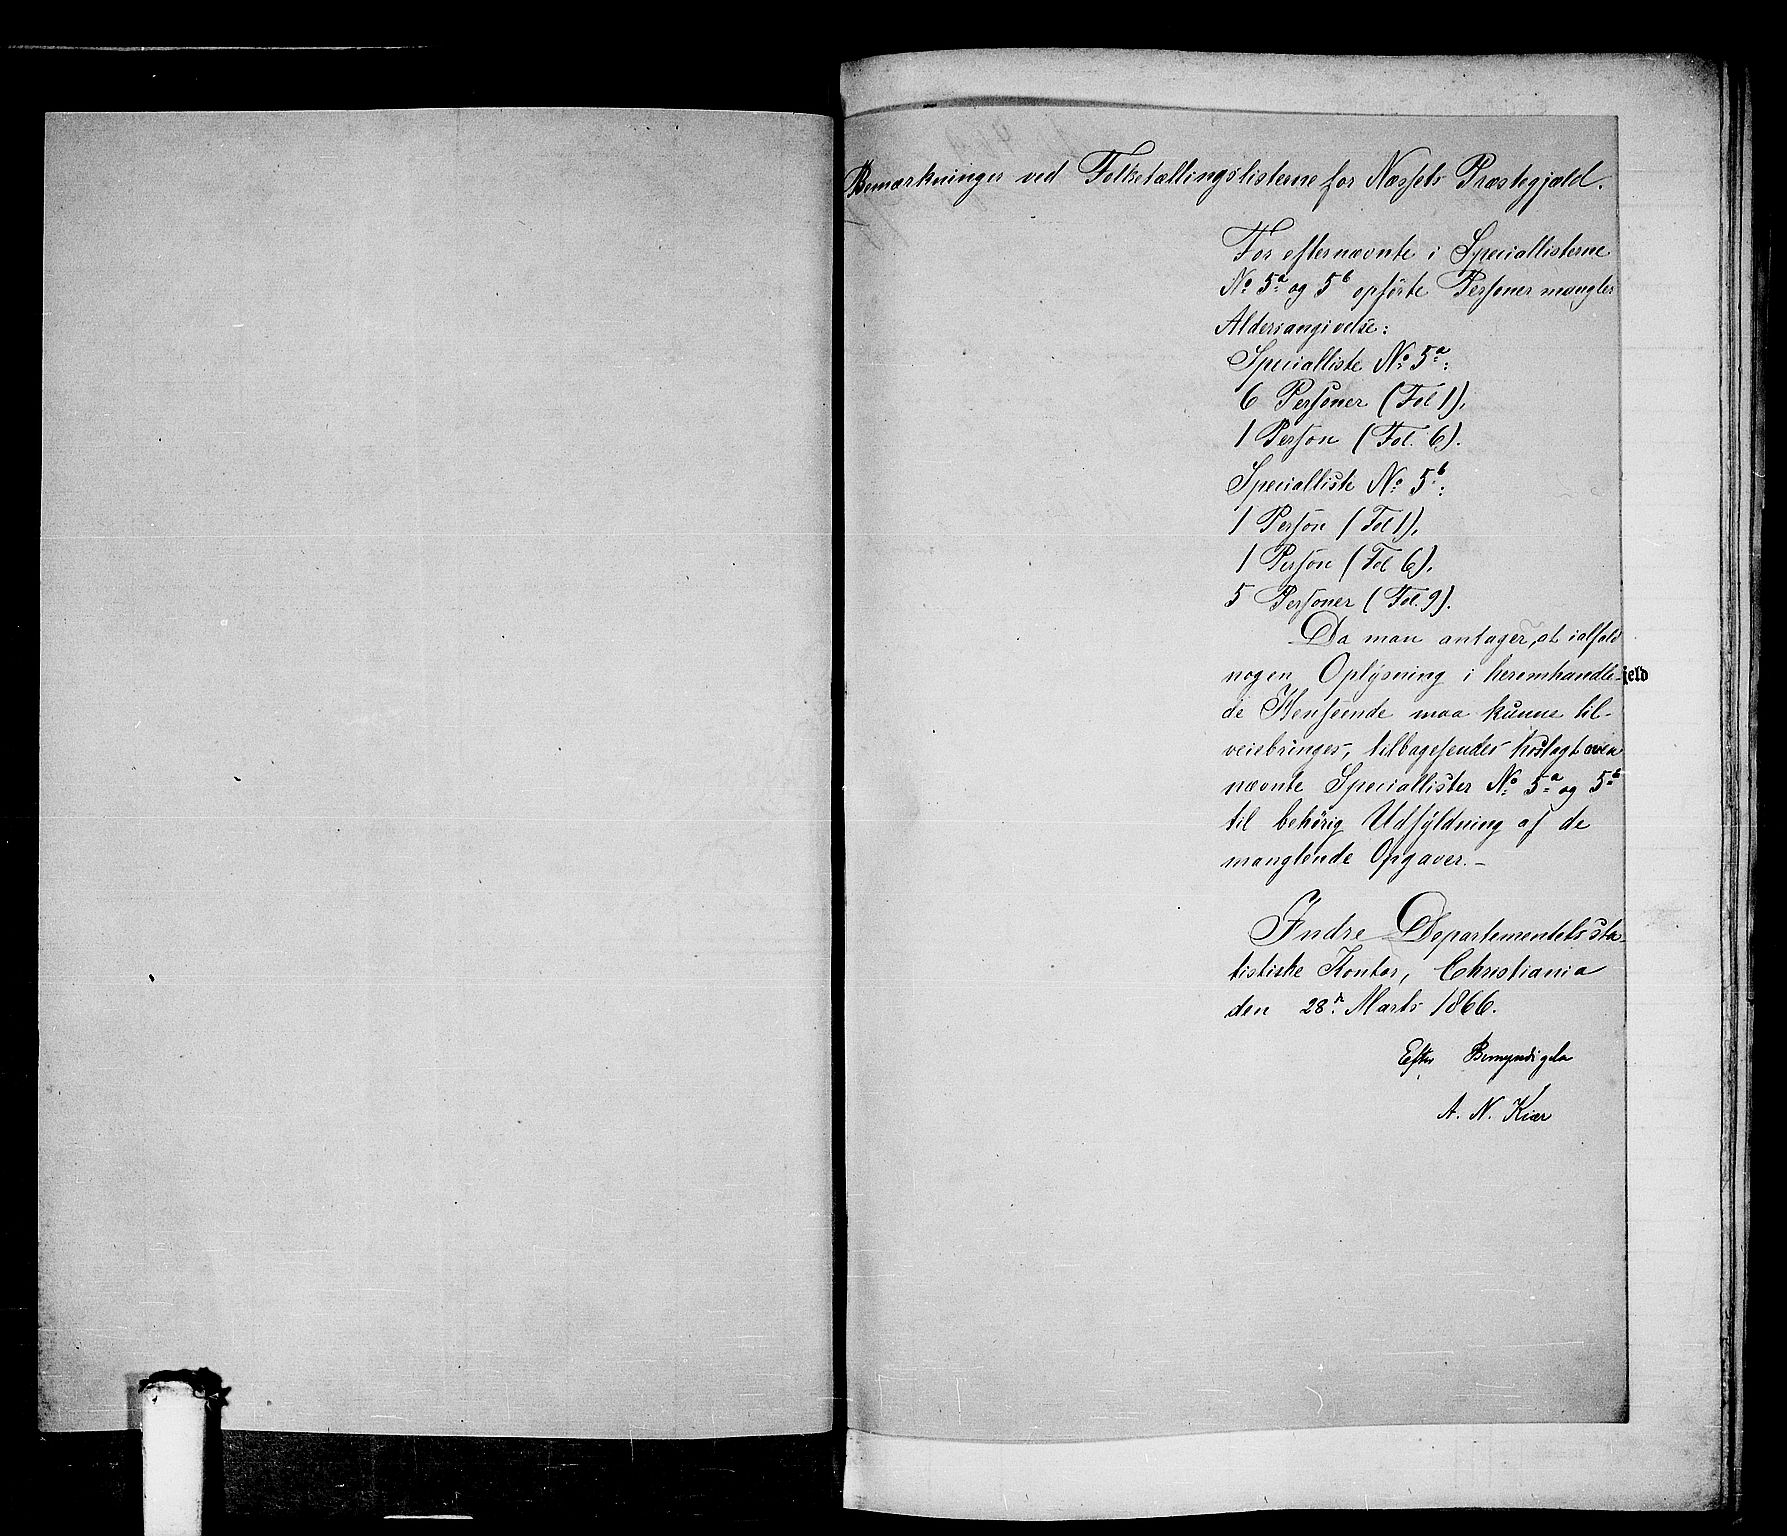 Bemærkninger ved Folketællingslisterne for Næssets Præstegjæld.
For efternævnte i Speciallisterne
No 5a og 5b opførte Personer mangler
Aldersangivelse:
Specialliste No 5a:
6 Personer (Fol 1),
1 Person (Fol. 6).
Specialliste No 5b:
1 Person (Fol 1),
1 Person (Fol 6),
5 Personer (Fol. 9).
Da man antager, at ialfald
nogen Oplysning i heromhandle-
jeld
de Henseende maa kunne til-
veiebringes, tilbagesendes hoslagt oven
nævnte Speciallister No 5a og 5b
til behørig Udfyldning af de
manglende Opgaver. -
Indre Departementets sta-
tistiske Kontor, Christiania
den 28de Marts 1866.
Efter Bemyndigelse
A. N. Kiær